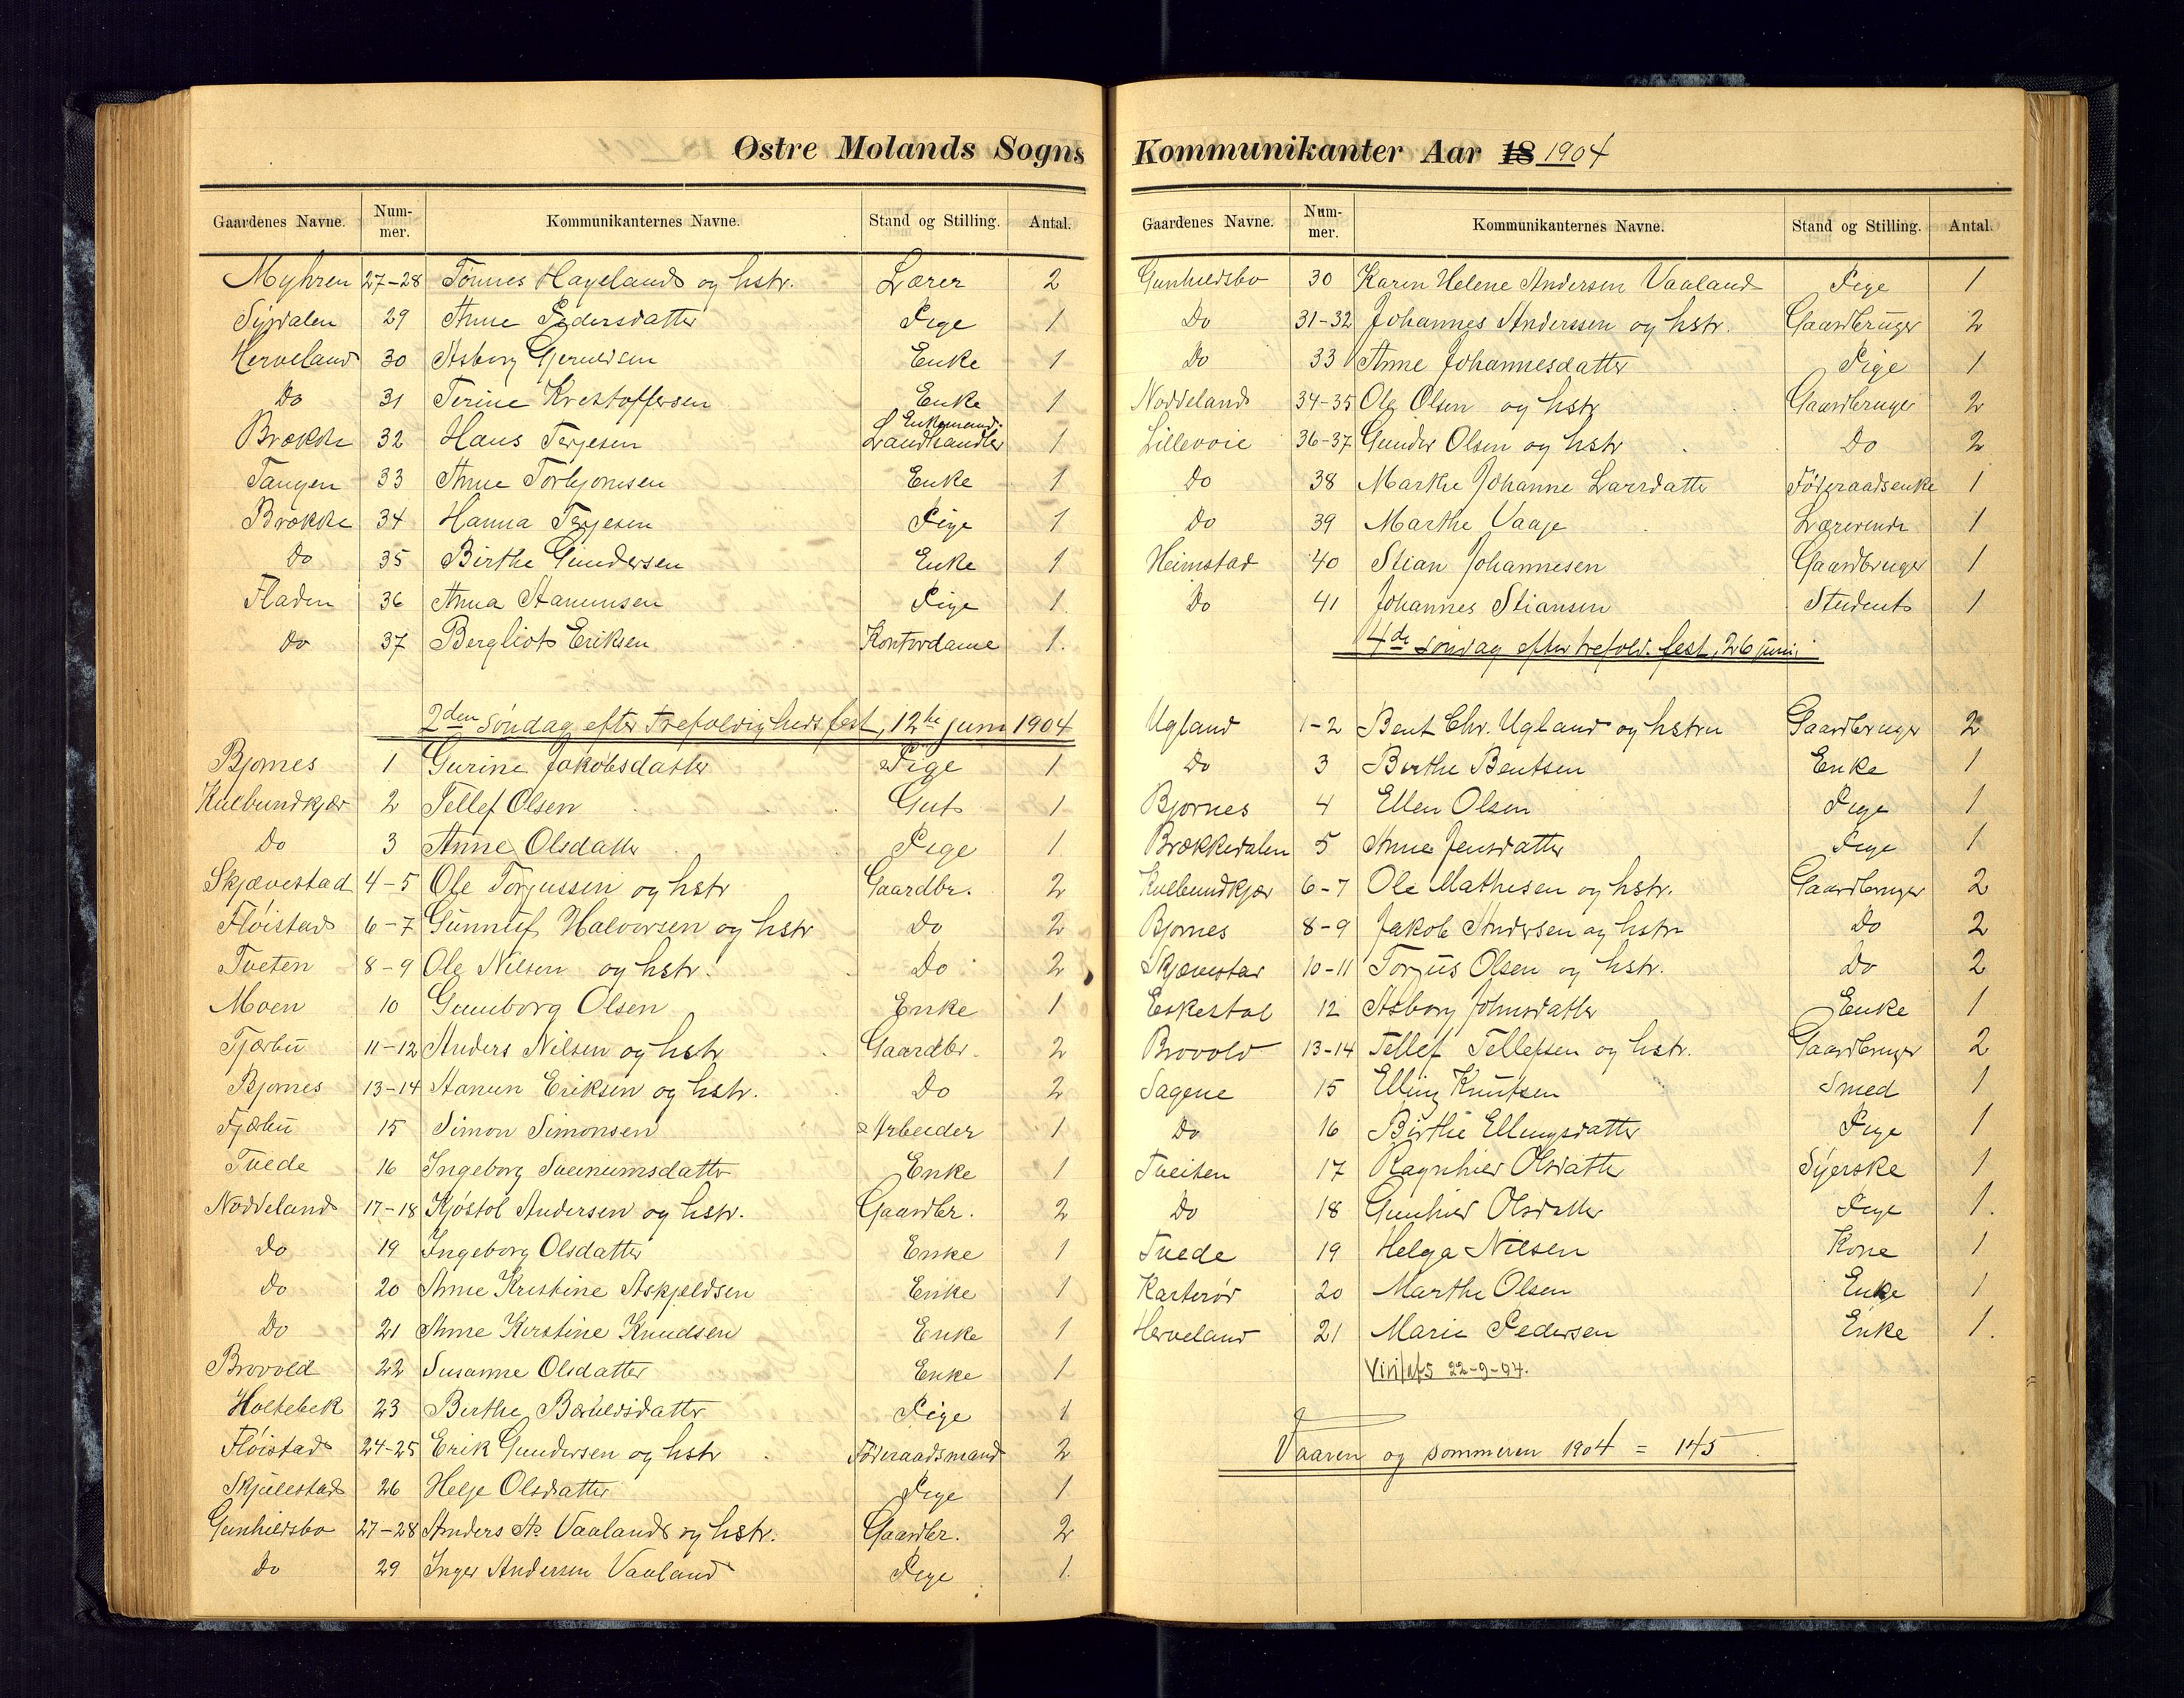 Østre Molands Sogns
Gaardenes Navne. Num-mer. Kommunikanternes Navne. Stand og Stilling. Antal.
Myhren 27-28 Tønnes Hageland og hstr. Lærer 2
29 Anne Pedersdatter Pige 1
Herveland 30 Asborg Enke 1
Do 31 Terine Kristoffersen Enke 1
Enkemand.
Brække 32 Hans Terjesen Landhandler 1
Tangen 33 Anne Torbjørnsen Enke 1
Brække 34 Hanna Terjesen Pige 1
Do 35 Birthe Gundersen Enke 1
Fladen 36 Anna Stanunsen Pige 1
Do 37 Bergliot Eriksen Kontordame 1.
2den Søndag efter Trefoldighedsfest, 12te juni 1904
Bjornes 1 Gurine Jakobsdatter Pige 1
Kulbundkjær 2 Tellef Olsen Gut 1
Do 3 Anne Olsdatter Pige 1
Skjævestad 4-5 Ole Torjussen og hstr Gaardbr. 2
Fløistad 6-7 Gunnuf Halvorsen og hstr Do 2
Tveten 8-9 Ole Nilsen og hstr. Do 2
Moen 10 Gunborg Olsen Enke 1
Tjærbu 11-12 Anders Nilsen og hstr Gaardbr. 2
Bjornes 13-14 Stanun Eriksen og hstr. Do 2
15 Simon Simonsen Arbeider 1
Tvede 16 Ingeborg Sveinumsdatter Enke 1
Noddeland 17-18 Kjøstol Andersen og hstr. Gaardbr. 2
Do 19 Ingeborg Olsdatter Enke 1
Do 20 Anne Kristine Askjeldsen Enke 1
Do 21 Anne Kirstine Knudsen Enke 1
Brovold 22 Susanne Olsdatter Enke 1
Holtebek 23 Berthe Pige 1
Fløistad 24-25 Erik Gundersen og hstr Føderaadsmand 2
Skjulestad 26 Helje Olsdatter Pige 1
Gunhildsbo 27-28 Anders As Vaaland og hstr. Gaardbr. 2
Do 29 Inger Andersen Vaaland Pige 1
Kommunikanter Aar 18 1904
Gaardenes Navne. Num-mer. Kommunikanternes Navne. Stand og Stilling. Antal.
Gunhildsbo 30 Karen Helene Andersen Vaaland Pige 1
Do 31-32 Johannes Anderssen og hstr. Gaardbruger 2
Do 33 Anne Johannesdatter Pige 1
Noddeland 34-35 Ole Olsen og hstr Gaardbruger 2
Lillevoie 36-37 Gunder Olsen og hstr Do 2
Do 38 Marthe Johanne Larsdatter Føderaadsenke 1
Do 39 Marthe Vaaje Lærerinde 1
Heimstad 40 Stian Johannesen Gaardbruger 1
Do 41 Johannes Stiansen Student 1
4de søndag efter trefold. fest, 26 juni
Ugland 1-2 Bent Chr. Ugland og hstru Gaardbruger 2
Do 3 Berthe Bentsen Enke 1
Bjornes 4 Ellen Olsen Pige 1
Brækkedalen 5 Anne Jensdatter Pige 1
Kulbundkjær 6-7 Ole Mathisen og hstr. Gaardbruger 2
Bjornes 8-9 Jakob Andersen og hstr Do 2
Skjævestad 10-11 Torjus Olsen og hstr. Do 2
Eskestol 12 Asborg Johnsdatter Enke 1
Brovold 13-14 Tellef Tellefsen og hstr. Gaardbruger 2
Sagene 15 Elling Knutsen Smed 1
Do 16 Birthe Ellingsdatter Pige 1
Tveiten 17 Ragnhild Olsdatter Syerske 1
Do 18 Gunhild Olsdatter Pige 1.
Tvede 19 Helga Nilsen Kone 1
Karterød 20 Marthe Olsen Enke 1
Herveland 21 Marie Pedersen Enke 1.
22-9-04.
Vaaren og sommeren 1904 = 145